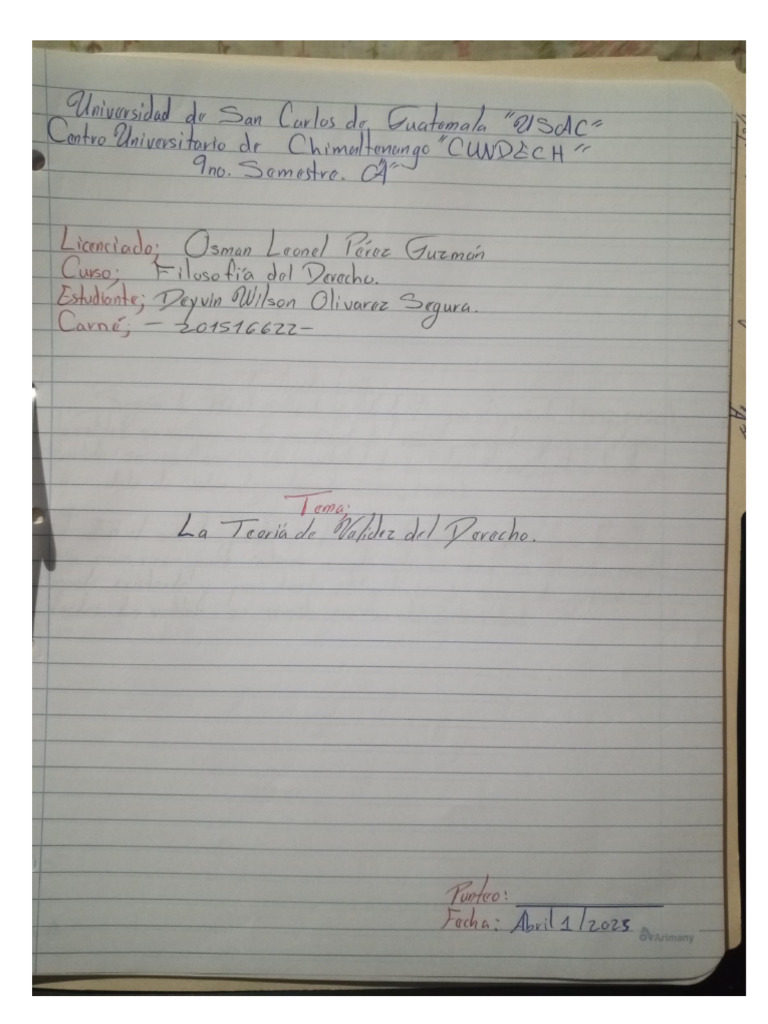 Universidad de San Carlos de Guatemala "USAC"
Centro Universitario de Chimaltenango "CUNDECH"
9no. Semestre. "A"
Licenciado; Osman Leonel Pérez Guzmán
Curso; Filosofía del Derecho.
Estudiante; Deyvin Wilson Olivarez Segura.
Carné; - 201516622-
Tema;
La Teoría de Validez del Derecho.
Punteo:
Fecha: Abril 1/2025
Arimany